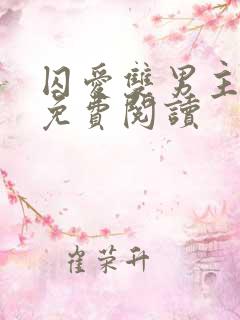 囚愛雙男主
免費閱讀
崔荣升